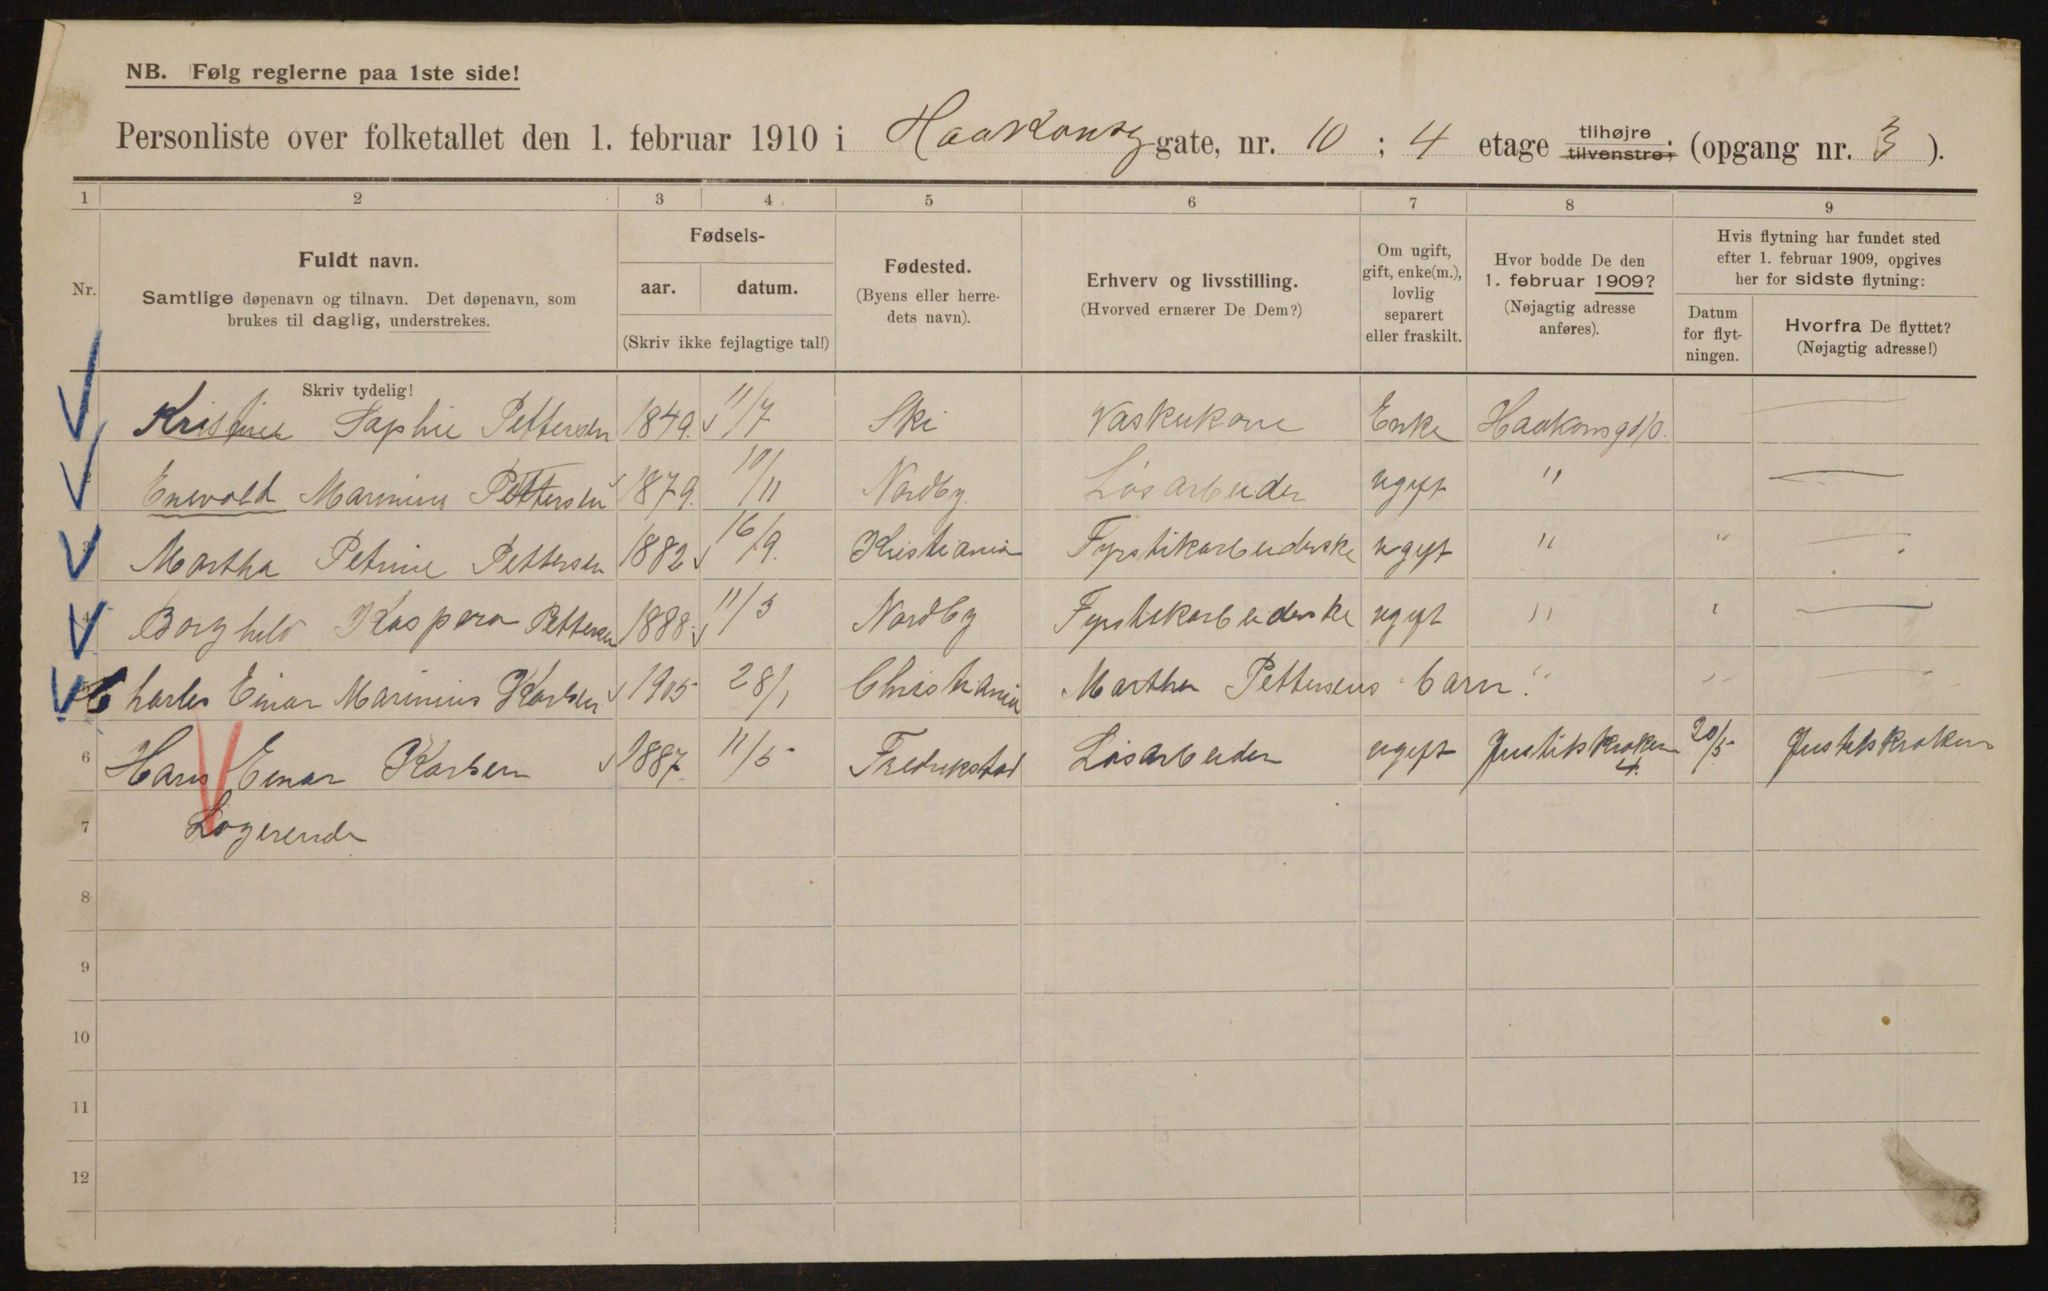 NB. Følg reglerne paa 1ste side!
Personliste over folketallet den 1. februar 1910 i Haakonsg gate, nr. 10 ; 4 etage tilhøjre tilvenstre; (opgang nr. 3 ).
1 2 3 4 5 6 7 8 9
Nr.
Fuldt navn.
Samtlige døpenavn og tilnavn. Det døpenavn, som
brukes til daglig, understrekes.
Skriv tydelig!
Fødsels-
aar. datum.
(Skriv ikke fejlagtige tal!)
Fødested.
(Byens eller herre-
dets navn).
Erhverv og livsstilling.
(Hvorved ernærer De Dem?)
Om ugift,
gift, enke(m.),
lovlig
separert
eller fraskilt.
Hvor bodde De den
1. februar 1909?
(Nøjagtig adresse
anføres).
Hvis flytning har fundet sted
efter 1. februar 1909, opgives
her for sidste flytning:
Datum
for flyt-
ningen.
Hvorfra De flyttet?
(Nøjagtig adresse!)
Sophie Pettersen 1849. 11/7 Ski Vaskekone Enke Haakonsgd 10.
Enevold Marinius Pettersen 1879. 10/11 Nordby Løsarbeider ugift "
3 Martha Petrine Pettersen 1882 16/9. Kristiania Fyrstikarbeiderske ugift " "
4 Borghild Kaspara Pettersen 1888. 11/3 Nordby Fyrstikarbeiderske ugift " "
Charles Einar Marinius Karlsen 1905 28/1 Christiania Martha Pettersens barn. " "
6 Hans Einar Karlsen 1887 11/5 Fredrikstad Løsarbeider ugift Justitskroken 4. 20/5 Justitskroken
7 Logerende
8
9
10
11
12